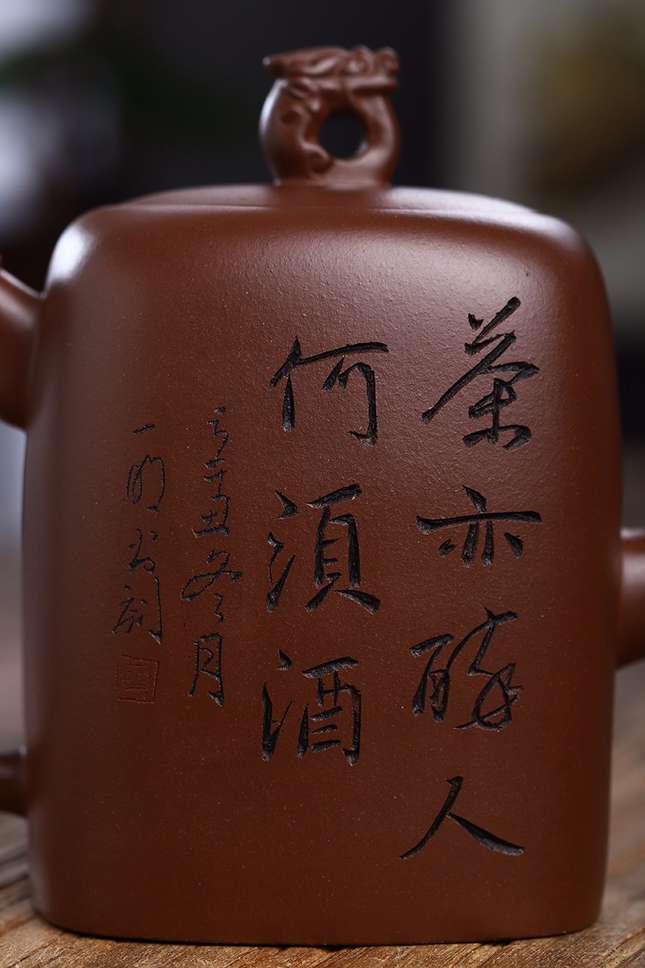 茶亦醉人
何须酒
辛丑冬月
一明书刻